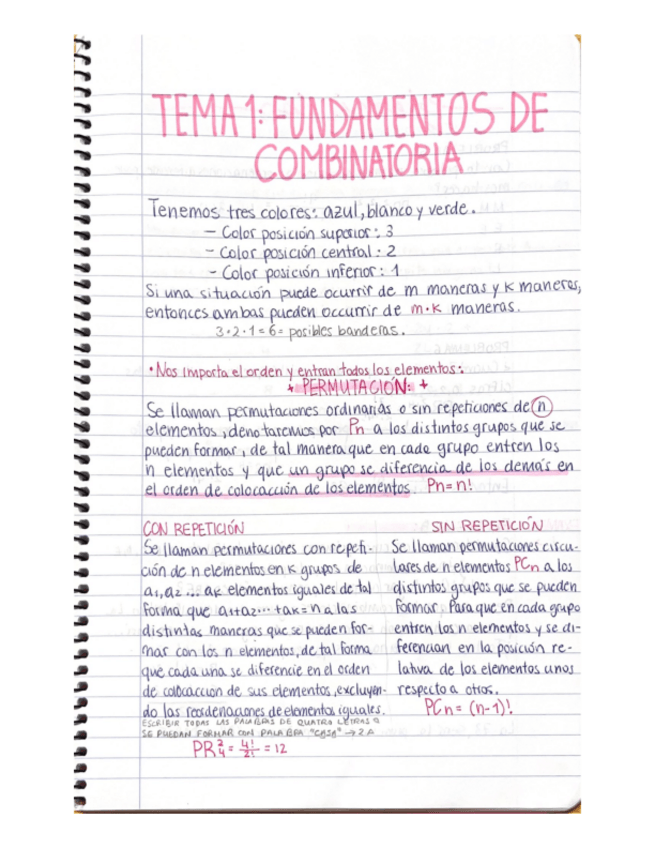 TEMA 1: FUNDAMENTOS DE
COMBINATORIA
Tenemos tres colores: azul, blanco y verde.
- Color posición superior: 3
- Color posición central: 2
- Color posición inferior: 1
Si una situación puede ocurrir de m maneras y k maneras,
entonces ambas pueden occurrir de m·k maneras.
3·2·1=6= posibles banderas.
• Nos importa el orden y entran todos los elementos:
+ PERMUTACIÓN: +
Se llaman permutaciones ordinarias o sin repeticiones de n
elementos, denotaremos por Pn a los distintos grupos que se
pueden formar, de tal manera que en cada grupo entren los
n elementos y que un grupo se diferencia de los demás en
el orden de colocacción de los elementos. Pn=n!
CON REPETICIÓN
Se llaman permutaciones con repeti-
ción de n elementos en k grupos de
a1, a2 ... ak elementos iguales de tal
forma que a1+a2... +ak=n a las
distintas maneras que se pueden for-
mar con los n elementos, de tal forma
que cada una se diferencie en el orden
de colocaccion de sus elementos, excluyen-
do las reordenaciones de elementos iguales.
ESCRIBIR TODAS LAS PALABRAS DE QUATRO LETRAS Q
SE PUEDAN FORMAR CON PALABRA "CASA" → 2A
PR²₄ = 4!/2! = 12
SIN REPETICIÓN
Se llaman permutaciones circu-
lares de n elementos PCn a los
distintos grupos que se pueden
formar. Para que en cada grupo
entren los n elementos y se di-
ferencian en la posición re-
lativa de los elementos unos
respecto a otros.
PCn = (n-1)!